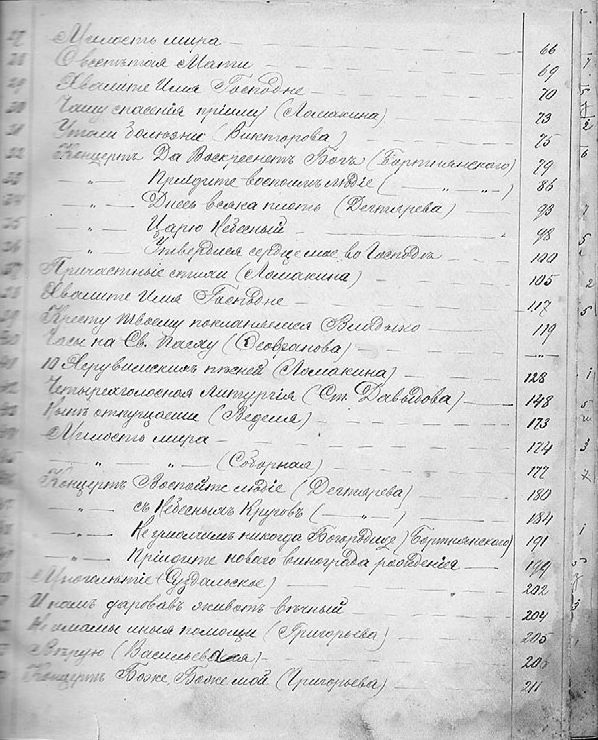 27 Милость мира 66
28 О всепѣтая Мати 69
29 Хвалите Имя Господне 70
30 Чашу спасенія прiиму (Ломакина) 73
31 Утоли болѣзни (Викторова) 75
32 Концертъ Да Воскреснетъ Богъ (Бортнянскаго) 79
33 „ Прiидите воспоимъ людiе („ „) 86
34 „ Днесь всяка плоть (Дегтярева) 93
35 „ Царю Небесный 98
36 „ Утвердися сердце мое во Господѣ 100
37 Причастные стихи (Ломакина) 105
38 Хвалите Имя Господне 117
39 Кресту твоему покланяемся Владыко 119
40 Часы на Св. Пасху (Ѳеофанова) „
41 10 Херувимскихъ пѣсней (Ломакина) 128
Четырехголосная Литургiя (Ст. Давыдова) 148
Нынѣ отпущаеши (Веделя) 173
Милость мира 174
„ „ (Соборная) 177
Концертъ Воспойте людiе (Дегтярева) 180
„ съ Небесныхъ Круговъ („) 184
„ Не умолчимъ никогда Богородице (Бортнянскаго) 191
„ Прiидите новаго винограда рожденiя 199
Многолѣтiе (Суздальское) 202
И намъ даровавъ животъ вѣчный 204
Не имамы иныя помощи (Григорьева) 205
Вѣрую (Васильевская) 206
Концертъ Боже, Боже мой (Григорьева) 211